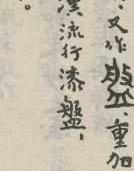 、又作盤、重加
漢流行漆盤，
。